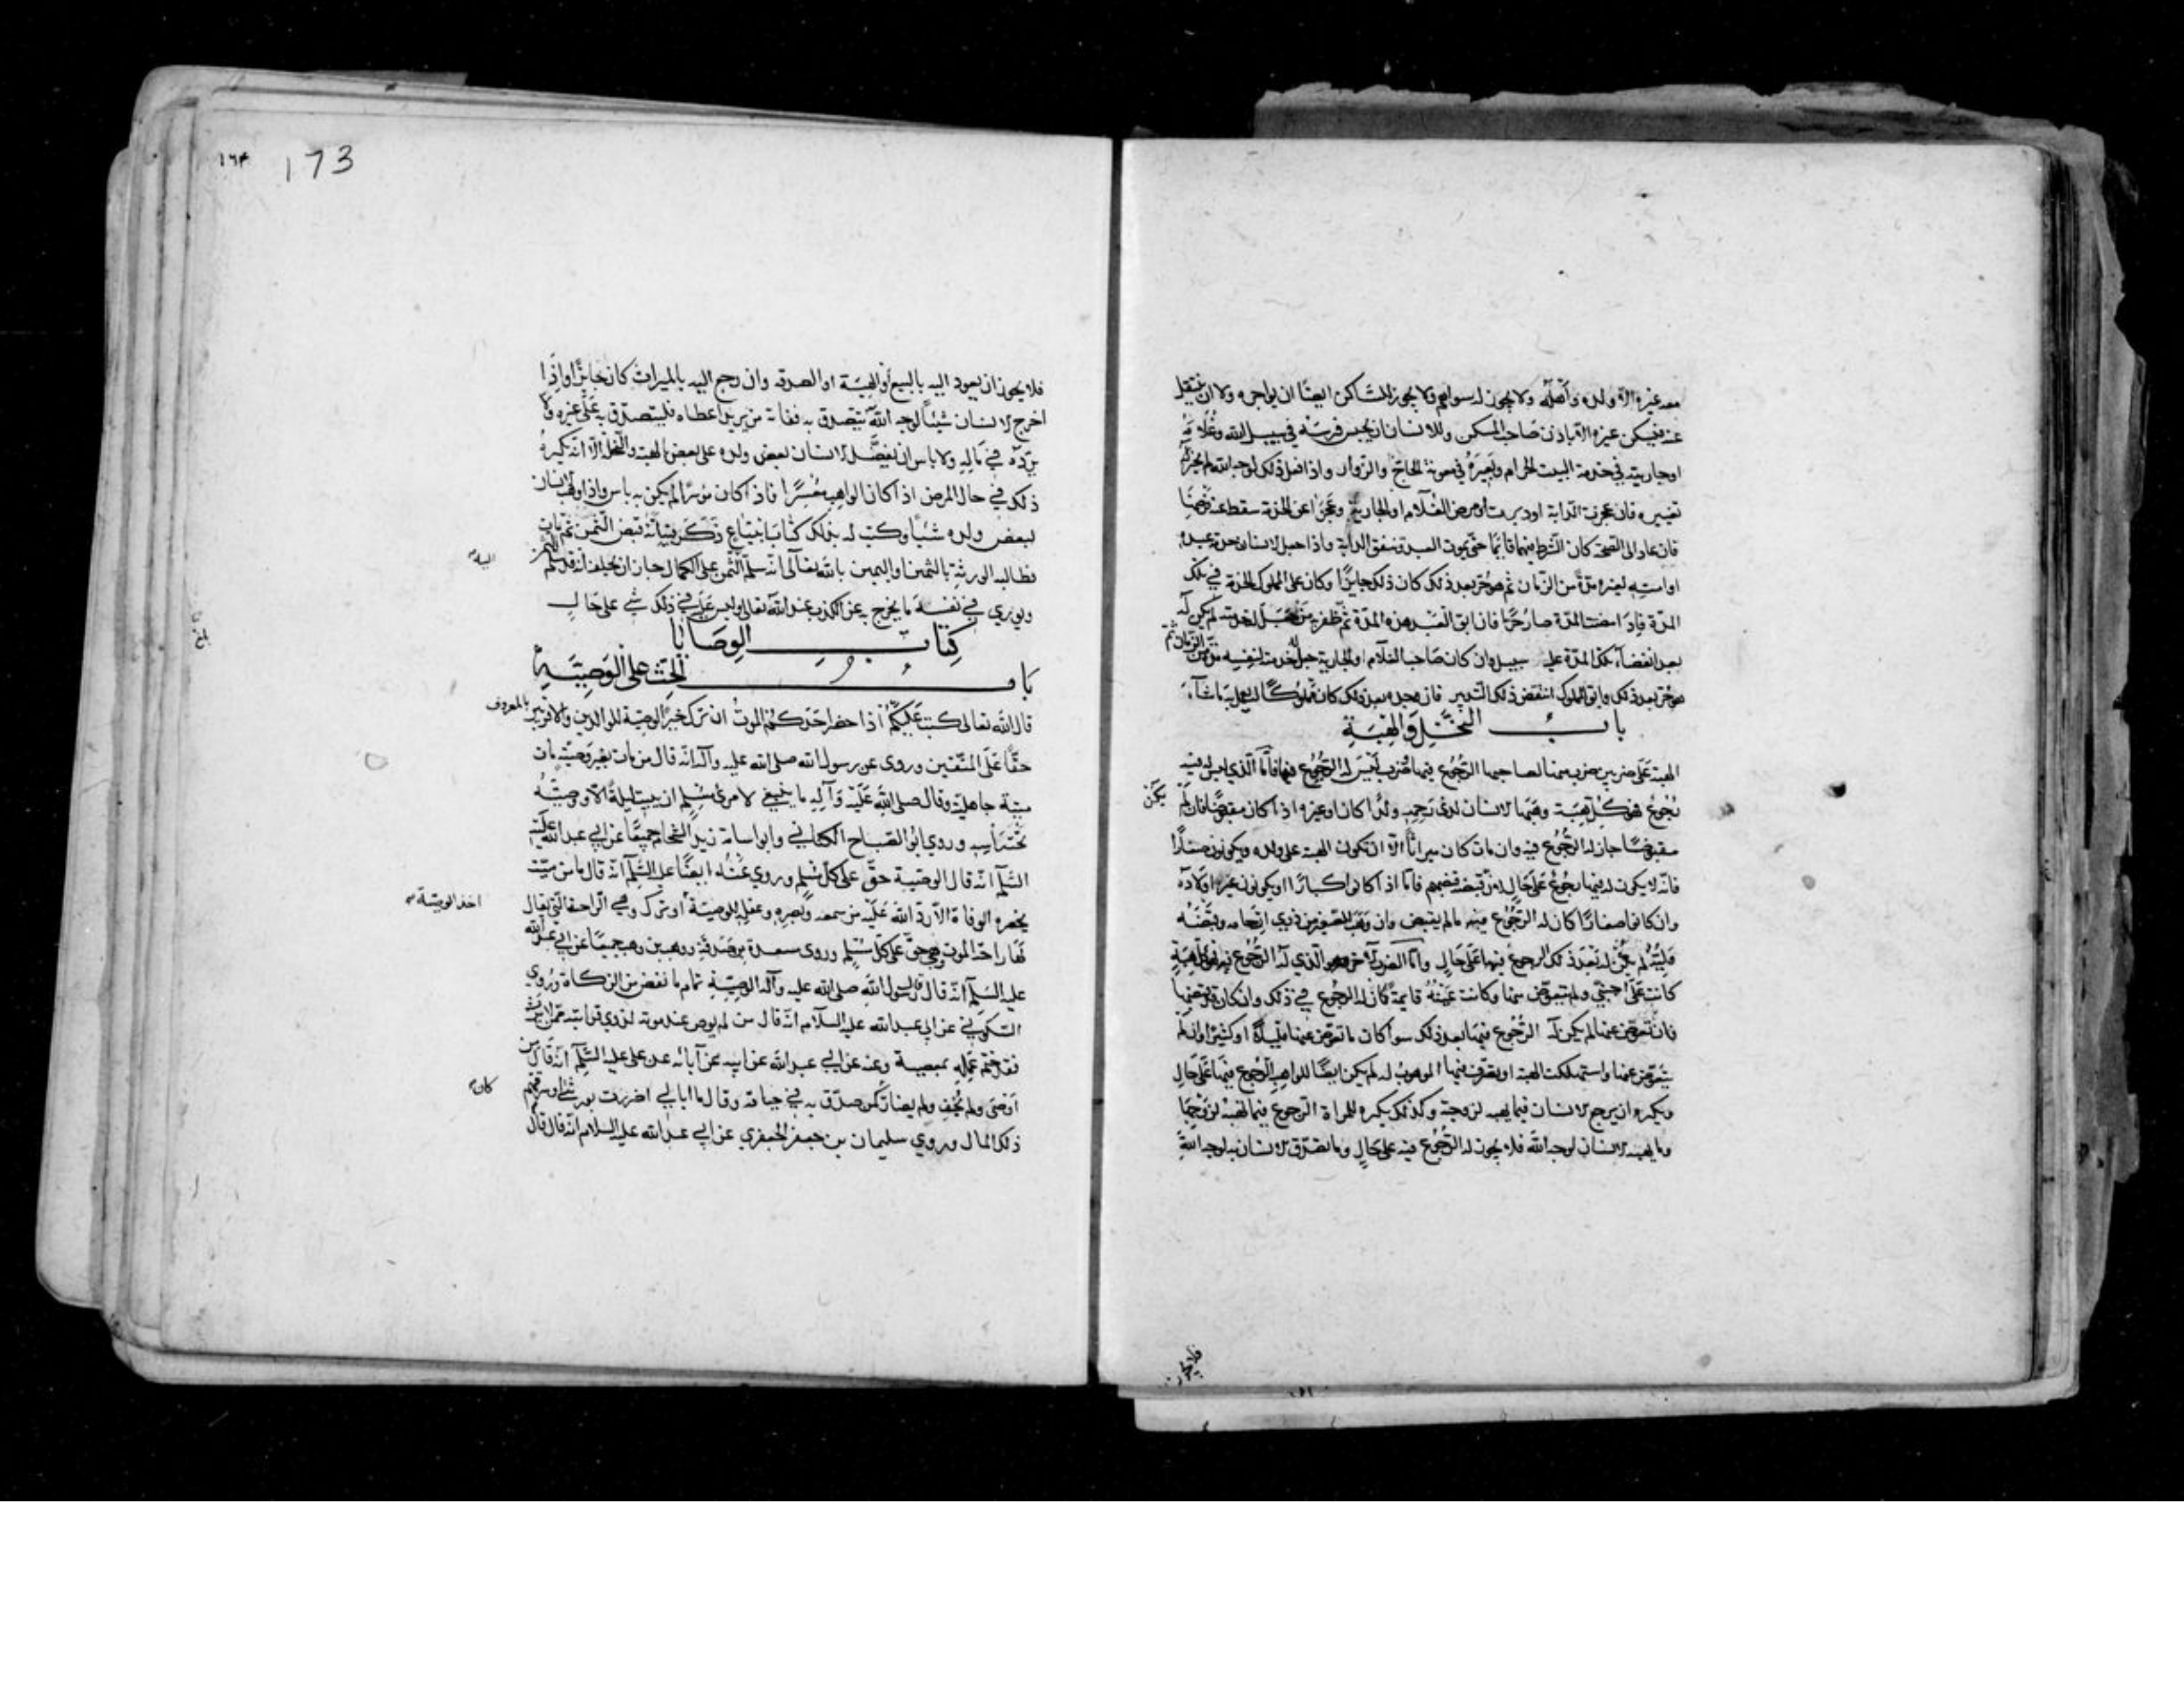 معه غيره الا ولده وأهله ولا يجوز له سواهم ولا يجوز للساكن ايضا ان يواجره ولا ان ينتقل
عنه فيسكن غيره الا باذن صاحب المسكن وللانسان ان يحبس فرسه في سبيل الله وغلامه
اوجاريته في خدمة البيت الحرام وبعيره في معونة الحاج والزوار واذا فعل ذلك لوجه الله لم يجز له
تغييره فان عجزت الدابة او دبرت او مرض الغلام او الجارية وعجزا عن الخدمة سقط عنه فرضها
فان عاد الى الصحة كان الشرط فيهما قائما حتى يموت العبد وتنفق الدابة واذا جعل الانسان خدمة عبده
او امته لغيره مدة من الزمان ثم هو حر بعد ذلك كان ذلك جايزا وكان على المملوك الخدمة في تلك
المدة فاذا مضت المدة صار حرا فان ابق العبد هذه المدة ثم ظفر به من جعل له خدمته لم يكن له
بعد انقضاء تلك المدة عليه سبيل وان كان صاحب الغلام او الجارية جعل خدمته لنفسه مدة من الزمان ثم
هو حر بعد ذلك وابق المملوك انتقض ذلك التدبير فان وجده بعد ذلك كان مملوكا له يعمل به ما شاء
باب النحل والهبة
الهبة على ضربين ضرب منها لصاحبها الرجوع فيها وضرب ليس له الرجوع فيها فاما الذي ليس له فيه
رجوع فهو كل هبة وهبها الانسان لذي رحمه ولدا كان او غيره اذا كان مقبوضا فان لم
يكن
مقبوضا جاز له الرجوع فيه وان مات كان ميراثا الا ان تكون الهبة على ولده ويكونون صغارا
فانه لا يكون له فيها رجوع على حال لان قبضه قبضهم فاما اذا كانوا كبارا او يكونون غير اولاده
وان كانوا صغارا كان له الرجوع فيه ما لم يقبض وان وهب للصغير من ذوي ارحامه وقبضه
وليه لم يكن له بعد ذلك الرجوع فيها على حال واما الضرب الاخر وهو الذي له الرجوع فيه فهو كل هبة
كانت على اجنبي ولم يتعوض منها وكانت عينه قايمة كان له الرجوع في ذلك وان كان قد قبضها
فان تعوض عنها لم يكن له الرجوع فيها بعد ذلك سواكان ما تعوض عنها قليلا او كثيرا وان لم
يتعوض عنها واستهلكت الهبة او تصرف فيها الموهوب له لم يكن ايضا للواهب الرجوع فيها على حال
ويكره ان يرجع الانسان فيما يهبه لزوجته وكذلك يكره للمراة الرجوع فيما تهبه لزوجها
وما يهبه الانسان لوجه الله فلا يجوز له الرجوع فيه على حال وما تصدق الانسان به لوجه الله
فلا يجوز
١٦٤ 173
فلا يجوز ان يعود اليه بالبيع أو الهبة او الصدقه وان رجع اليه بالميراث كان جايزا واذا
اخرج الانسان شيئا لوجه الله يتصدق به ففاته من يريد اعطاه فليتصدق به على غيره ولا
يرده في ماله ولا باس ان يفضل الانسان بعض ولده على بعض بالهبة والنحلة الا انه يكره
ذلك في حال المرض اذا كان الواهب معسرا فاذا كان موسرا لم يكن به باس واذا وهب الانسان
لبعض ولده شيئا وكتب له بذلك كتابا بابتياع ذكر فيه انه قبض الثمن ثم مات
فطالبه الورثة بالثمن او اليمين بالله تعالى انه سلم الثمن على الكمال جاز ان يحلف انه قد سلم الثمن
ويوري في نفسه ما يخرج به عن الكذب عند الله تعالى وليس عليه في ذلك شي على حال
كتاب الوصايا
باب الحث على الوصية
قال الله تعالى كتب عليكم اذا حضر احدكم الموت ان ترك خيرا الوصية للوالدين والاقربين بالمعروف
حقا على المتقين وروى عن رسول الله صلى الله عليه وآله انه قال من مات بغير وصية مات
ميتة جاهلية وقال صلى الله عليه وآله ما ينبغي لامرئ مسلم ان يبيت ليلة الا ووصيته
تحت راسه وروي ابو الصباح الكناني وابو اسامة زيد الشحام جميعا عن ابي عبد الله عليه
السلم انه قال الوصية حق على كل مسلم وروي عنه ايضا عليه السلم انه قال ما من ميت
يحضره الوفاة الا رد الله عليه من سمعه وبصره وعقله للوصية أو ترك وهي الراحة التي يقال
اخذ الوصية
لها راحة الموت وهي حق على كل مسلم وروى مسعدة بن صدقة ووهب بن وهب جميعا عن ابي عبد الله
عليه السلم انه قال قال رسول الله صلى الله عليه وآله الوصية تمام ما نقص من الزكاة وروي
السكوني عن ابي عبد الله عليه السلام انه قال من لم يوص عند موته لذوي قرابته ممن لا يرث
فقد ختم عمله بمعصية وعنه عن ابي عبد الله عن ابيه عن آبائه عن علي عليه السلم انه قال من
اوصى ولم يحف ولم يضار كمن صدق به في حياته وقال ما ابالي اضررت بورثتي او سرقتهم
كان
ذلك المال وروي سليمان بن جعفر الجعفري عن ابي عبد الله عليه السلام انه قال قال